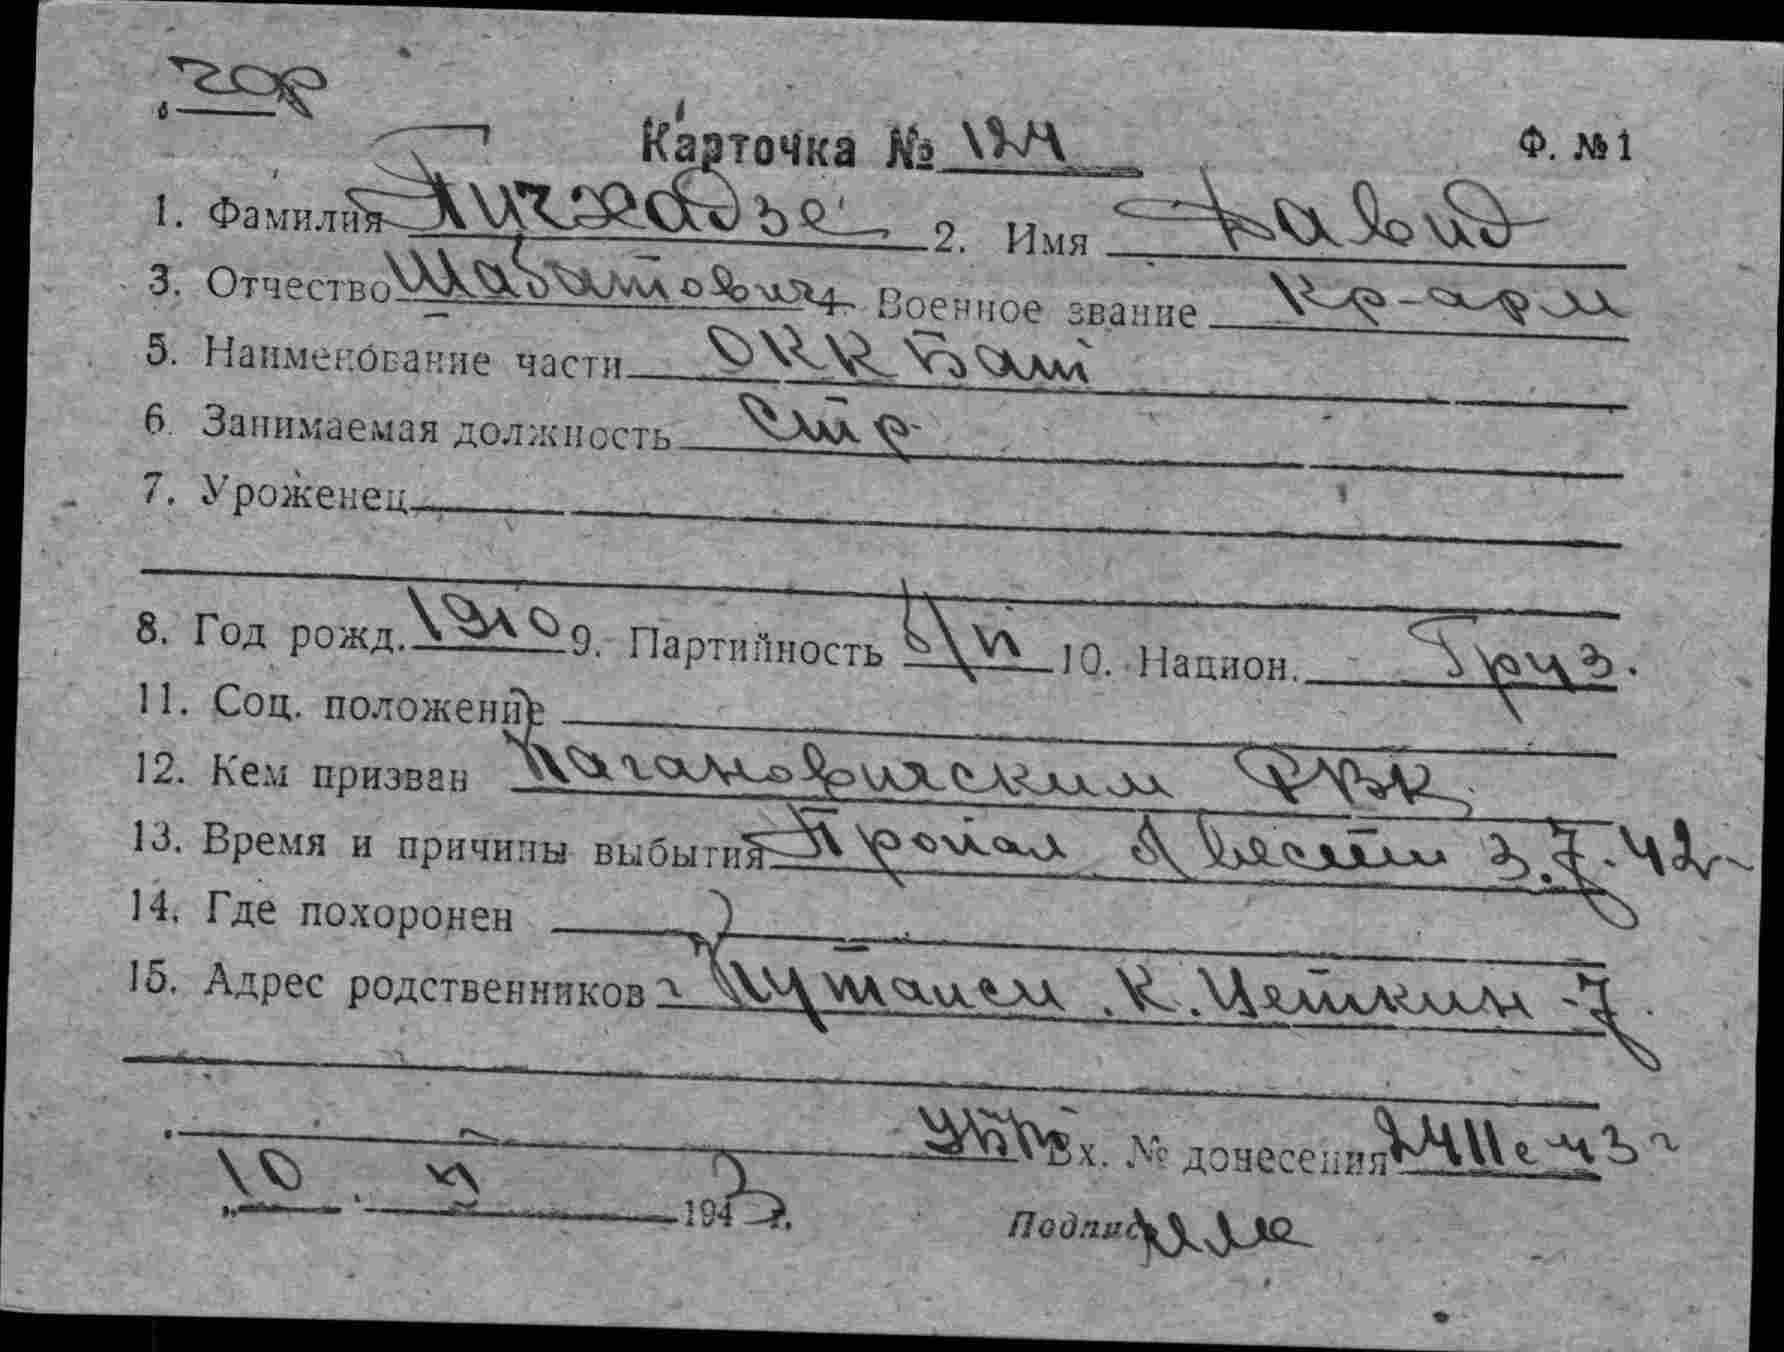 гор
Карточка № 124 Ф. № 1
1. Фамилия Пичхадзе 2. Имя Давид
3. Отчество Шабатович 4. Военное звание кр-арм
5. Наименование части ОККБат
6. Занимаемая должность Стр.
7. Уроженец
8. Год рожд. 1910 9. Партийность б/п 10. Национ. Груз.
11. Соц. положение
12. Кем призван Кагановичским РВК
13. Время и причины выбытия Пропал вести 3.7.42
14. Где похоронен
15. Адрес родственников г Кутаиси. К. Цеткин -7
Вх. № донесения 2411с 43 г
10 . 194 3 г.
Подпись